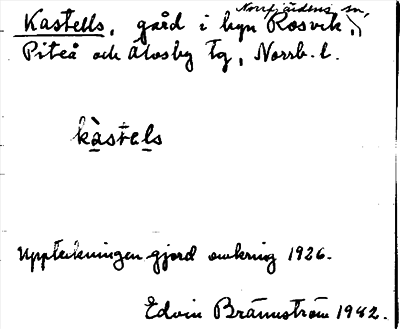 Kastells, gård i byn Rosvik, Norrfjärdens sn,
Piteå och Älvsby tg, Norrb. l.
kàstels
Uppteckningen gjord omkring 1926.
Edvin Brännström 1982.